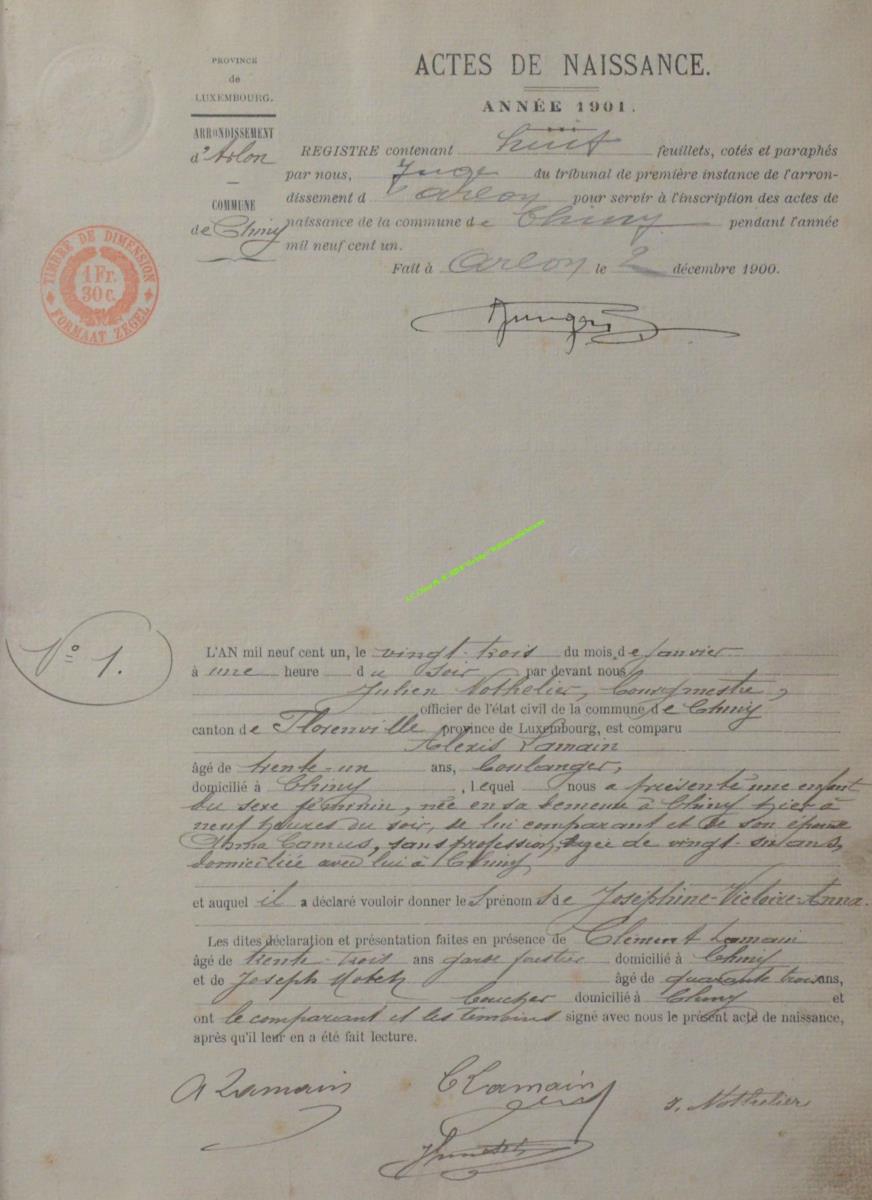 PROVINCE
de
LUXEMBOURG.
ARRONDISSEMENT
d'Arlon
COMMUNE
de Chiny
TIMBRE DE DIMENSION
1 Fr.
30 c.
FORMAAT ZEGEL
ACTES DE NAISSANCE.
ANNÉE 1901.
REGISTRE contenant huit feuillets, cotés et paraphés
par nous, Juge du tribunal de première instance de l'arron-
dissement d'Arlon pour servir à l'inscription des actes de
naissance de la commune de Chiny pendant l'année
mil neuf cent un.
Fait à Arlon le 2 décembre 1900.
N° 1.
L'AN mil neuf cent un, le vingt-trois du mois de janvier
à une heure du soir par devant nous
Julien Nothelier, Bourgmestre,
officier de l'état civil de la commune de Chiny
canton de Florenville province de Luxembourg, est comparu
Alexis Lamain
âgé de trente-un ans, boulanger,
domicilié à Chiny, lequel nous a présenté une enfant
du sexe féminin, née en sa demeure à Chiny hier à
neuf heures du soir, de lui comparant et de son épouse
Anna Camus, sans profession, âgée de vingt-six ans,
domiciliée avec lui à Chiny
et auquel il a déclaré vouloir donner les prénoms de Joséphine-Victoire-Anna.
Les dites déclaration et présentation faites en présence de Clément Lamain
âgé de trente-trois ans garde forestier domicilié à Chiny
et de Joseph âgé de quarante trois ans,
boucher domicilié à Chiny et
ont le comparant et les témoins signé avec nous le présent acte de naissance,
après qu'il leur en a été fait lecture.
A Lamain
C Lamain
J. Nothelier